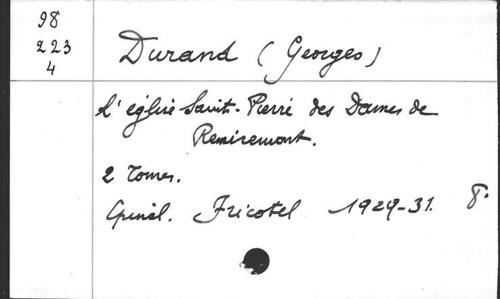 98
223
4
Durand (Georges)
L'église Saint-Pierre des Dames de
Remiremont.
2 Tomes.
Épinal. Fricotel 1929-31. 8°